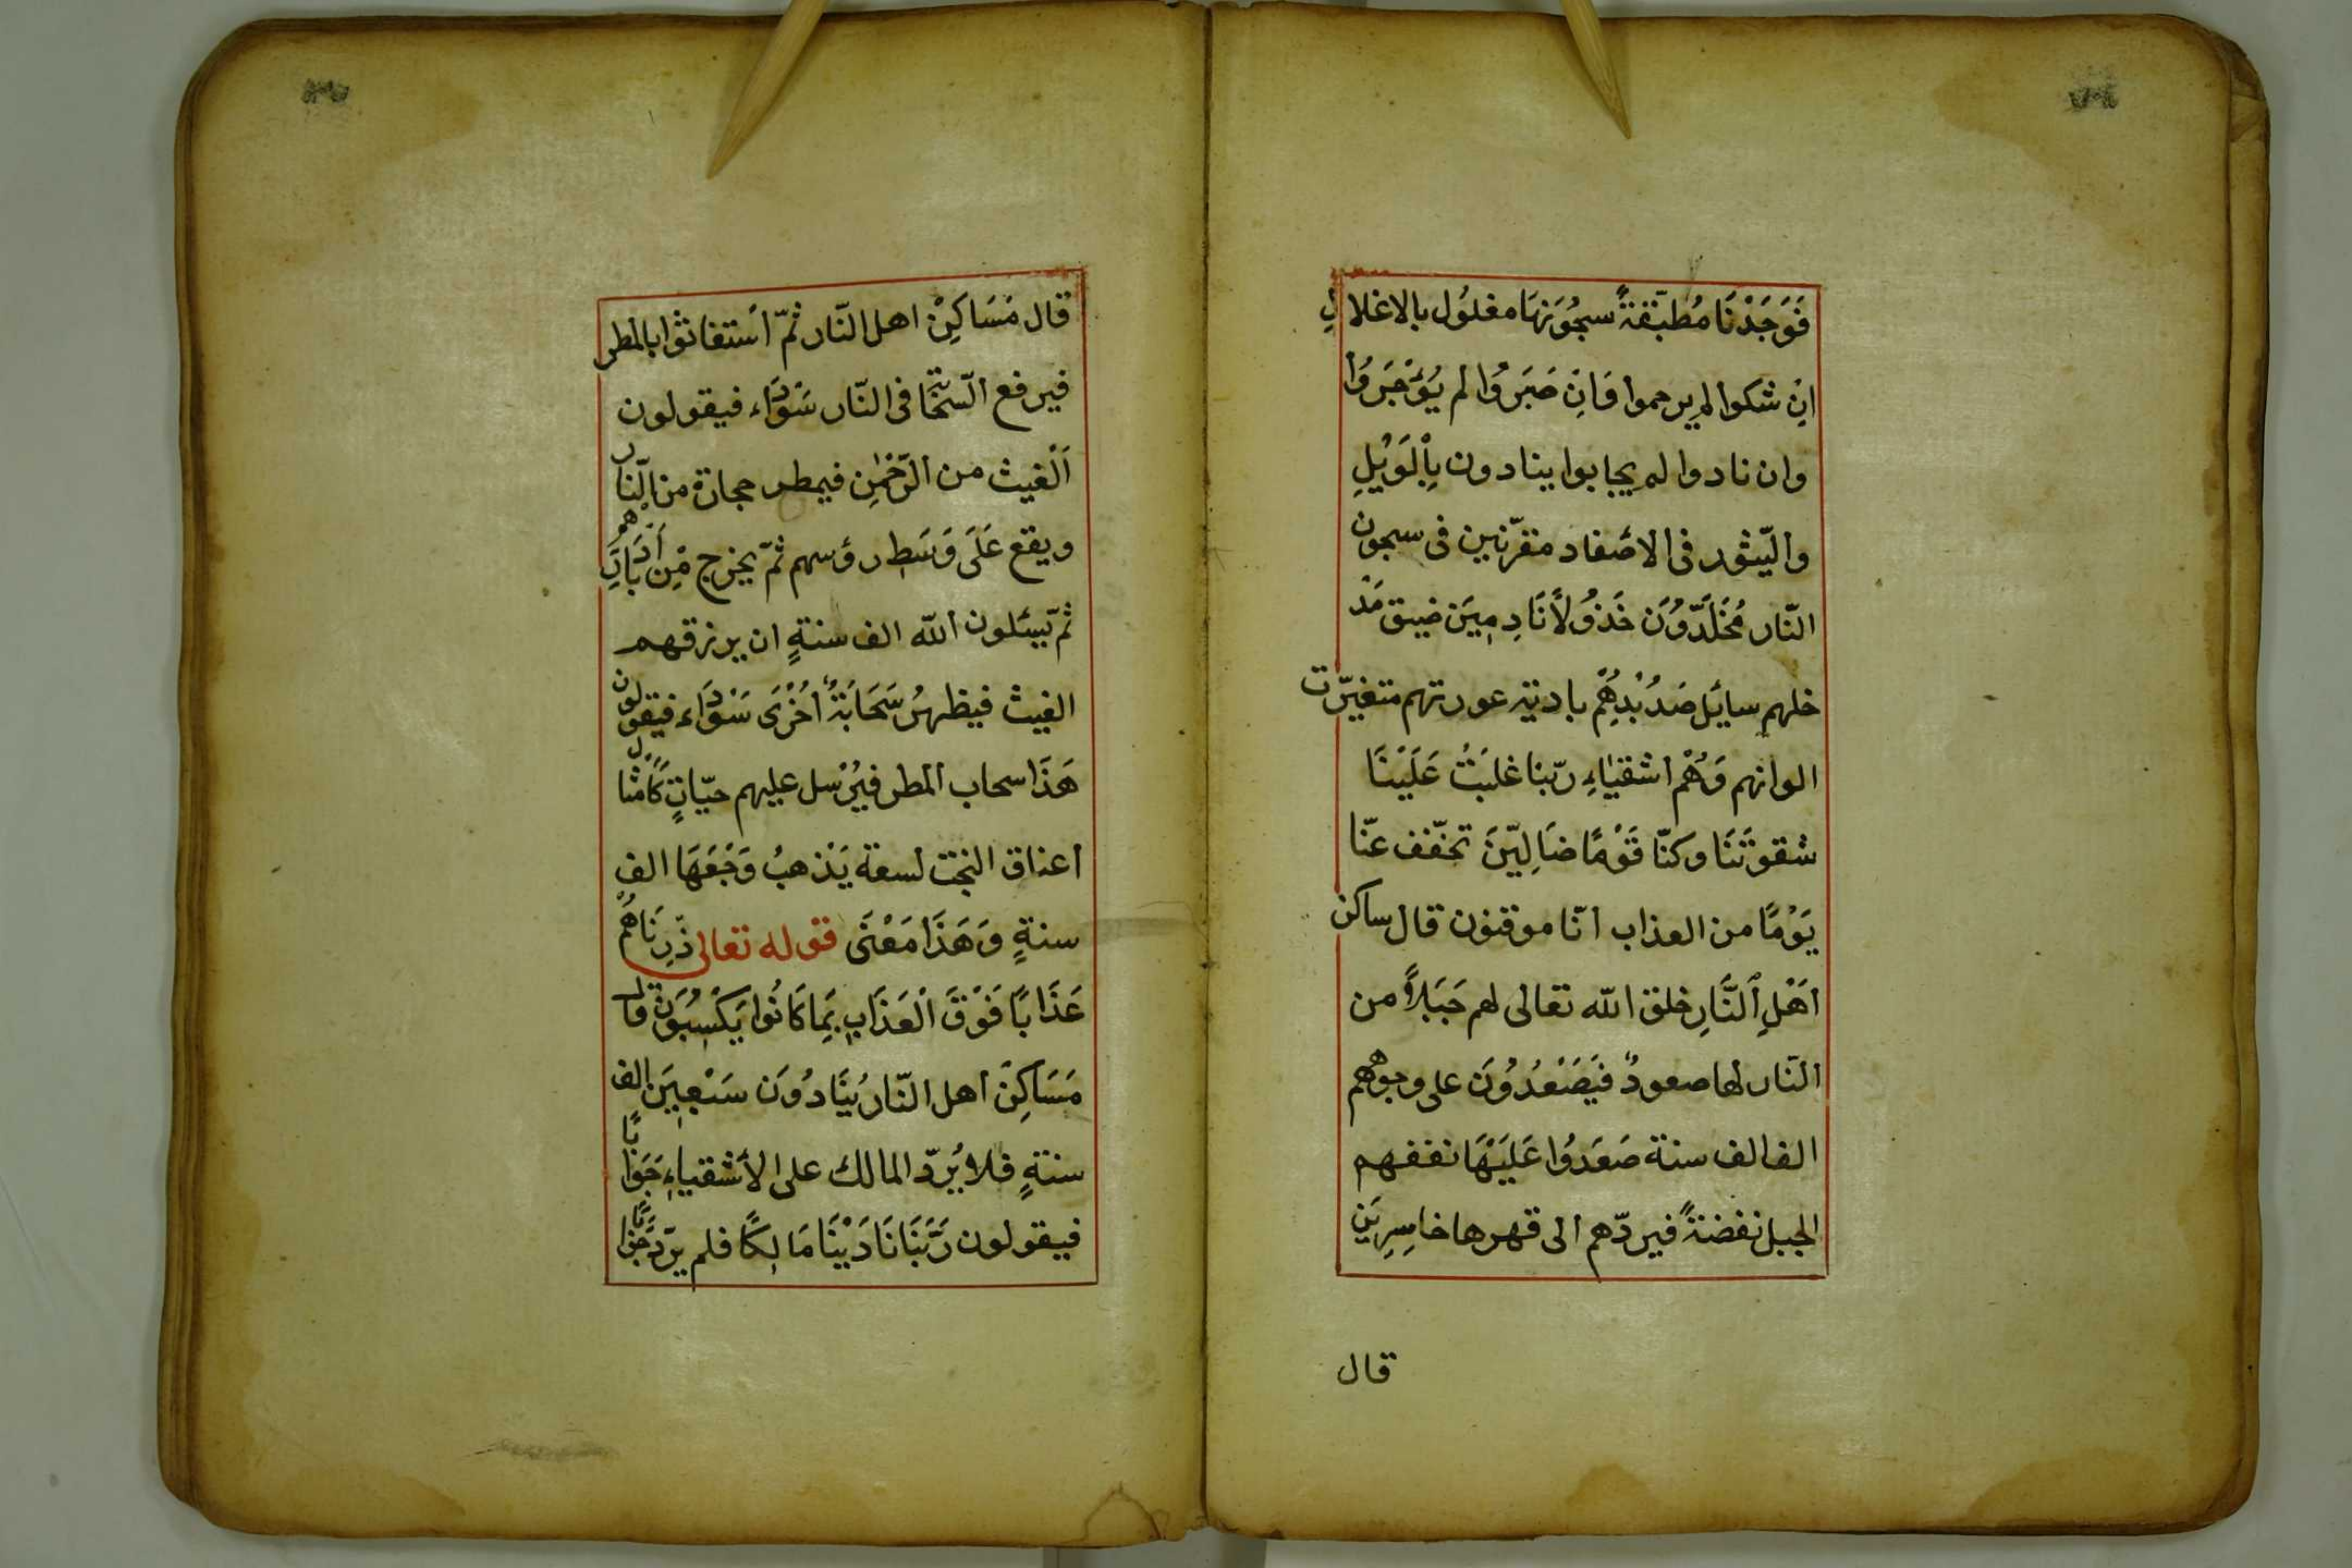 فَوَجَدْنَا مُطبَّقةً سجُوَنهَا مغلوُل بالاغلالِ
اِنْ شكوا لم يرحموا وَاِنْ صَبَرُوا لم يُوءْجَروُا
وان نادوا لم يجابوا ينادون بِاْلوَيْلِ
والثّبور فى الاصَفاد مقرّنين فى سجون
النّار مُخَلَّدُّونَ خَذوُلاً نَادِمِينَ ضيق مَدْ
خلهم سايَل صَدُبْدِهُم بادية عورتهم متغيّرت
الوانهم وَهُمْ اشقيٰاءِ ربّنا غلبَتْ عَلَيْنَا
شقوتَنَا وكنّا قَوْمًا ضَالِيّنَ تخّفف عنّا
يَوْمًا من العذاب انّا موقنون قال ساكن
اَهْلِ اَلنَّارِ خلق الله تعالى لهم جَبَلاً من
النّار لها صعودٌ فيَصَعَدُوُنَ على وجوههم
الف الف سنة صَعَدوُا عَلَيَهَا نفضهم
الجبل نفضةً فيردّهم الى قهرها خاسِرِيَن
قال
قال مَسَاكِنْ اهل النّار ثمّ اَستغاثوا بالمطر
فيرفع السّحَابَ فى النّار سَوْدَاء فيقولون
اَلْغيث من الرَّحْمٰنِ فيمطر حجارة من النّار
ويقع عَلَى وَسَطِ رؤسهم ثمّ يخرج مْنِ اَدْبَارِهُمْ
ثمّ يَسئلون الله الف سنةٍ ان يرزقهم
الغيث فيظهرُ سَحَابَةٌ اُخْرَى سَوْدَاء فيقولون
هَذَا سحاب المطر فيرُسل عليهم حيّاتٍ كَاَمْثَال
اعناق النجت لسعة يَذهبُ وَجْعَهَا الف
سنةٍ وَهَذَا مَعْنَى قوله تعالى ذّرِنَاهُمْ
عَذَابًا فَوْقَ اْلعَذَابِ بِمَا كَانُوا يَكْسِبُوَنَ قال
مَسَاكِنَ اهل النّار يُنَادُوُن سَبْعِيَن الف
سنةٍ فلا يُرَدّ المالك على الاَشقياءِ جَوَابًا
فيقولون رَبَّنَا نَادَيْنَا مَالِكًا فلم يرّدَ جَوَابًا